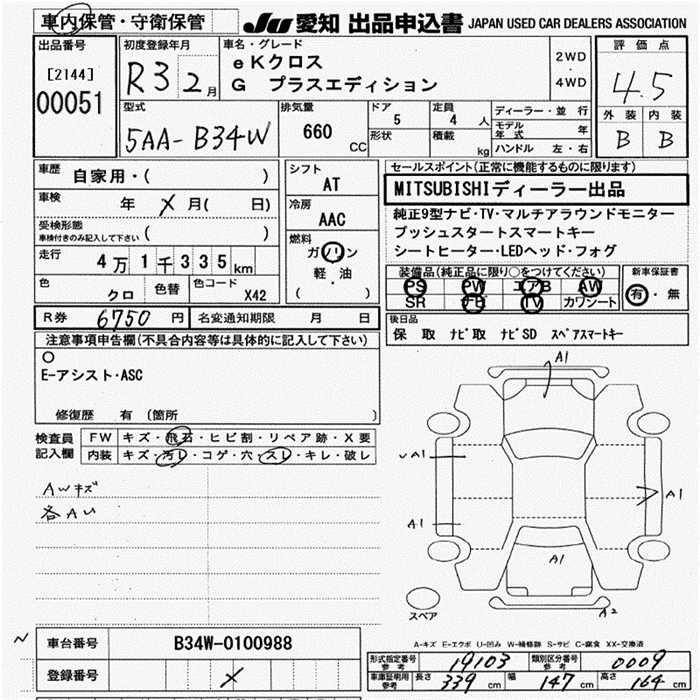 車内保管・守衛保管
JU 愛知 出品申込書 JAPAN USED CAR DEALERS ASSOCIATION
出品番号
[2144]
00051
初度登録年月
R3 2月
車名・グレード
eKクロス
G プラスエディション
2WD
・
4WD
評価点
4.5
外装 内装
B B
型式
5AA-B34W
排気量
660
CC
ドア
5
形状
定員
4 人
積載
kg
ディーラー・並行
モデル年式 年
ハンドル 左・右
車歴
自家用・( )
車検
年 メ 月( 日)
受検形態
車検付きのみ記入して下さい ( )
走行
4万1千335km
色
クロ
色替
色コード
X42
シフト
AT
冷房
AAC
燃料
ガソリン
軽・油
( )
セールスポイント(正常に機能するものに限ります)
MITSUBISHIディーラー出品
純正9型ナビ・TV・マルチアラウンドモニター
プッシュスタートスマートキー
シートヒーター・LEDヘッド・フォグ
装備品(純正品に限り○をつけてください)
PS PW エアB AW
SR TV カワシート
新車保証書
有・無
R券 6750円 名変通知期限 月 日
後日品
保 取 ナビ取 ナビSD スペアスマートキー
注意事項申告欄(不具合内容等は具体的に記入して下さい)
○
E-アシスト・ASC
修復歴 有 (箇所 )
検査員
記入欄
FW キズ・飛石・ヒビ割・リペア跡・X要
内装 キズ・汚レ・コゲ・穴・スレ・キレ・破レ
AWキズ
各AU
A1
A1
A1
A1
A1
A2
スペア
A-キズ E-エクボ U-凹み W-補修跡 S-サビ C-腐食 XX-交換済
車台番号 B34W-0100988
登録番号 メ
形式指定番号
参考
19103
類別区分番号
参考
0009
車庫証明用
参考
長さ 339cm 幅 147cm 高さ 164cm